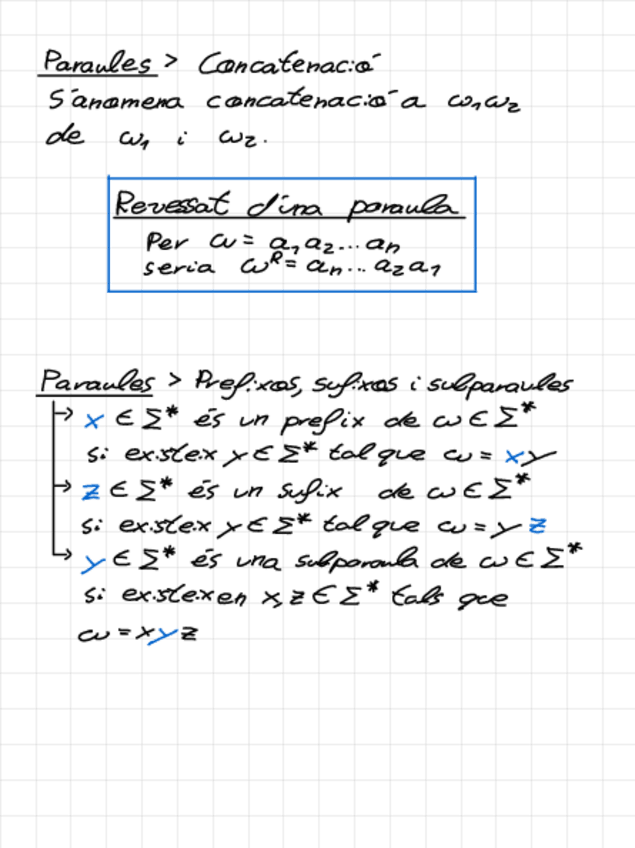 Paraules > Concatenació
S'anomena concatenació a ω₁ω₂
de ω₁ i ω₂.
Revessat d'una paraula
Per ω = a₁a₂...aₙ
seria ωᴿ = aₙ...a₂a₁
Paraules > Prefixos, sufixos i subparaules
→ x ∈ Σ* és un prefix de ω ∈ Σ*
si existeix y ∈ Σ* tal que ω = xy
→ z ∈ Σ* és un sufix de ω ∈ Σ*
si existeix y ∈ Σ* tal que ω = yz
→ y ∈ Σ* és una subparaula de ω ∈ Σ*
si existeixen x, z ∈ Σ* tals que
ω = xyz